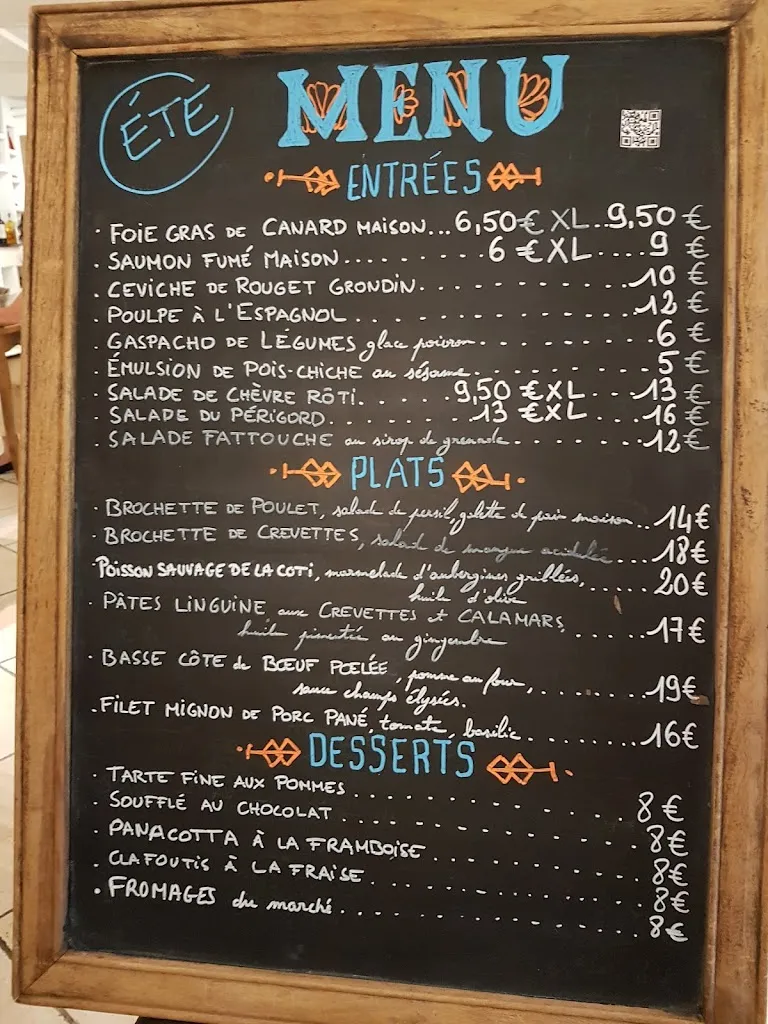 ÉTÉ
MENU
ENTRÉES
· FOIE GRAS DE CANARD MAISON...6,50€ XL..9,50 €
. SAUMON FUMÉ MAISON........6 € XL....9 €
. CEVICHE DE ROUGET GRONDIN..........10 €
. POULPE À L'ESPAGNOL..........12 €
. GASPACHO DE LÉGUMES glace poivron..........6 €
. ÉMULSION DE POIS-CHICHE au sésame..........5 €
. SALADE DE CHÈVRE RÔTI......9,50 € XL...13 €
. SALADE DU PÉRIGORD........13 € XL...16 €
. SALADE FATTOUCHE au sirop de grenade.......12€
PLATS
· BROCHETTE DE POULET, salade de persil, galette de pain maison...14€
· BROCHETTE DE CREVETTES, salade de mangue acidulée....18€
·POISSON SAUVAGE DE LA COTI, marmelade d'aubergines grillées,.....20€
huile d'olive
· PÂTES LINGUINE aux CREVETTES et CALAMARS,......17€
huile pimentée au gingembre
· BASSE CÔTE de BŒUF POELÉE, pomme au four,.........19€
sauce champs élysées.
. FILET MIGNON DE PORC PANÉ, tomate, basilic.........16€
DESSERTS
· TARTE FINE AUX POMMES..............8€
· SOUFFLÉ AU CHOCOLAT..............8€
· PANACOTTA À LA FRAMBOISE..........8€
· CLAFOUTIS À LA FRAISE............8€
. FROMAGES du marché..............8€